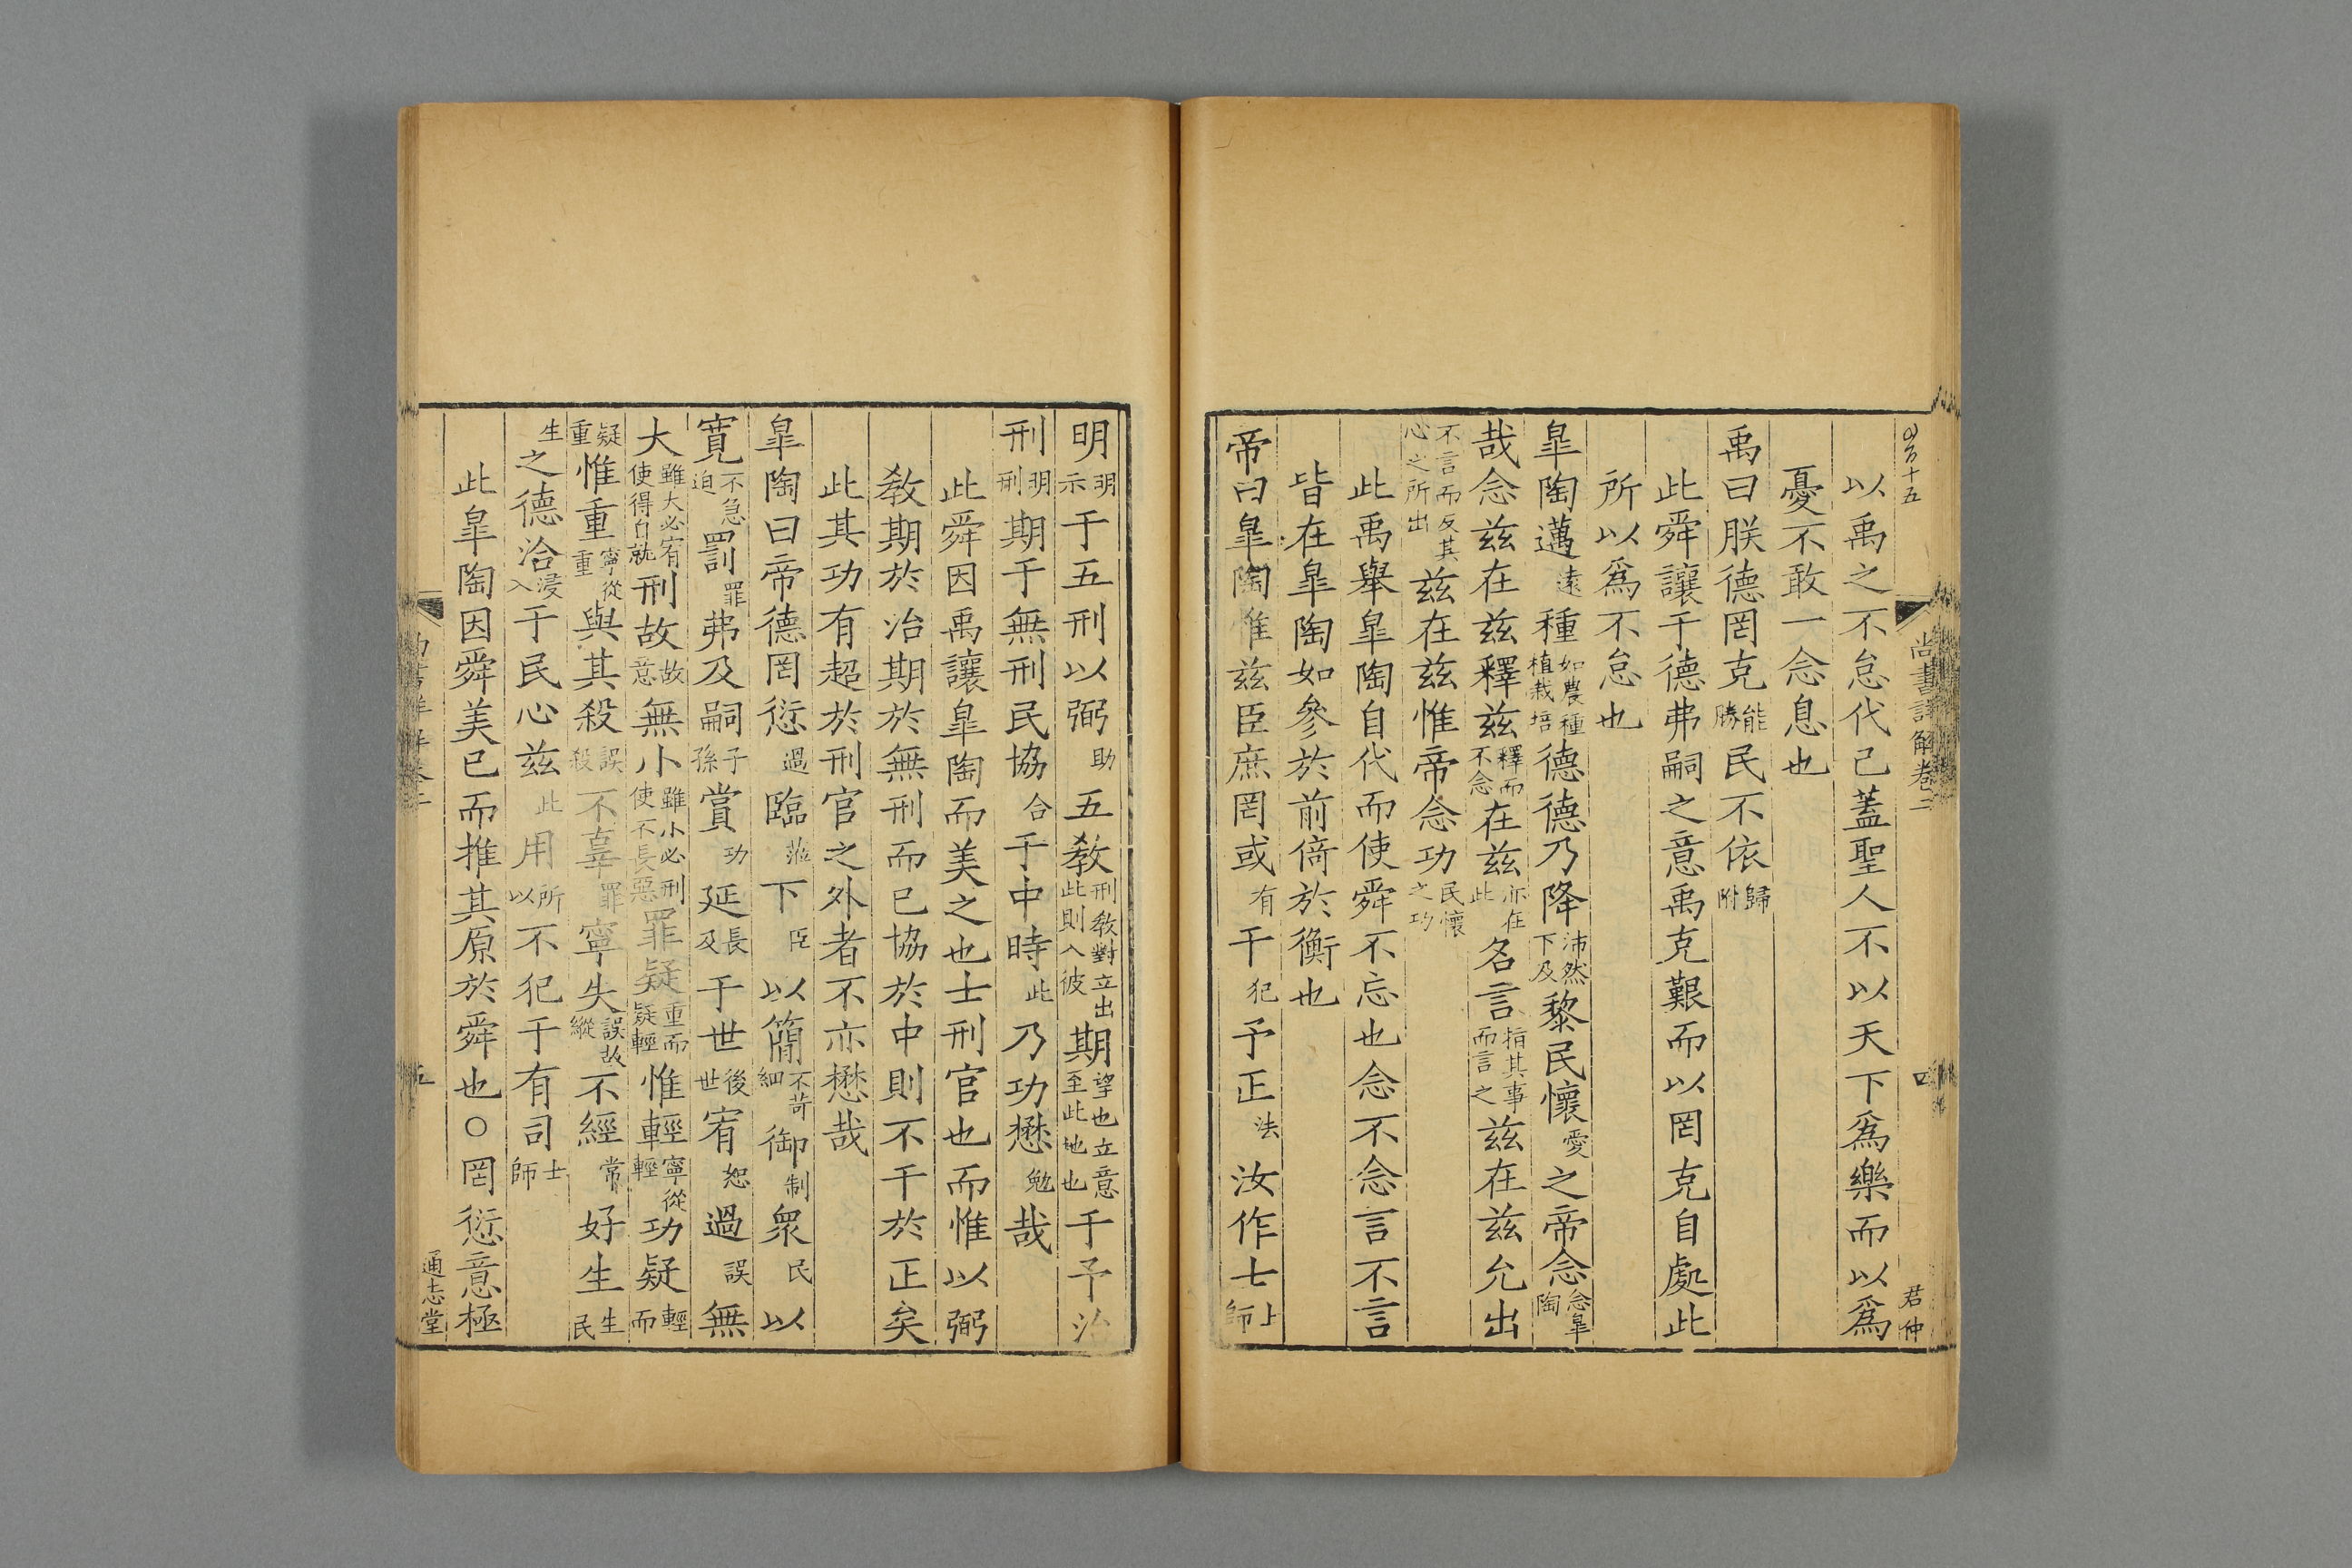 尚書詳解卷二
四
君仲
以禹之不怠代己蓋聖人不以天下爲樂而以爲
憂不敢一念息也
禹曰朕德罔克能勝民不依歸附
此舜讓于德弗嗣之意禹克艱而以罔克自處此
所以爲不怠也
皐陶邁遠種如農種植栽培德德乃降沛然下及黎民懷愛之帝念念皐陶
哉念兹在兹釋兹釋而不念在兹亦在此名言指其事而言之兹在兹允出
不言而反其心之所出兹在兹惟帝念功民懷之功
此禹舉皐陶自代而使舜不忘也念不念言不言
皆在皐陶如參於前倚於衡也
帝曰皐陶惟兹臣庶罔或有干犯予正法汝作士士師
明明示于五刑以弼助五敎刑敎對立出此則入彼期望也立意至此地也于予治
刑明刑期于無刑民協合于中時此乃功懋勉哉
此舜因禹讓皐陶而美之也士刑官也而惟以弼
敎期於治期於無刑而已協於中則不干於正矣
此其功有超於刑官之外者不亦懋哉
皐陶曰帝德罔愆過臨蒞下臣以簡不苛細御制衆民以
寬不急迫罰罪弗及嗣子孫賞功延長及于世後世宥恕過誤無
大雖大必宥使得自就刑故故意無小雖小必刑使不長惡罪疑重而疑輕惟輕寧從輕功疑輕而
疑重惟重寧從重與其殺誤殺不辜罪寧失誤故縱不經常好生生民
生之德洽浸入于民心兹此用所以不犯于有司士師
此皐陶因舜美已而推其原於舜也○罔愆意極
五
通志堂